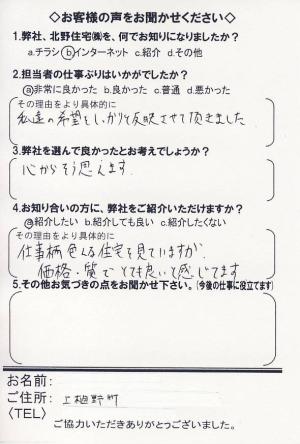 ◇お客様の声をお聞かせください◇
1.弊社、北野住宅㈱を、何でお知りになりましたか?
a.チラシ b.インターネット c.紹介 d.その他
2.担当者の仕事ぶりはいかがでしたか?
a.非常に良かった b.良かった c.普通 d.悪かった
その理由をより具体的に
私達の希望をしっかりと反映させて頂きました
3.弊社を選んで良かったとお考えでしょうか?
心からそう思えます
4.お知り合いの方に、弊社をご紹介いただけますか?
a.紹介したい b.紹介しても良い c.紹介したくない
その理由をより具体的に
仕事柄色々な住宅を見ていますが、
価格・質でとても良いと感じてます
5.その他お気づきの点をお聞かせ下さい。(今後の仕事に役立てます)
お名前:
ご住所: 上 野町
〈TEL〉
ご協力いただきありがとうございました。